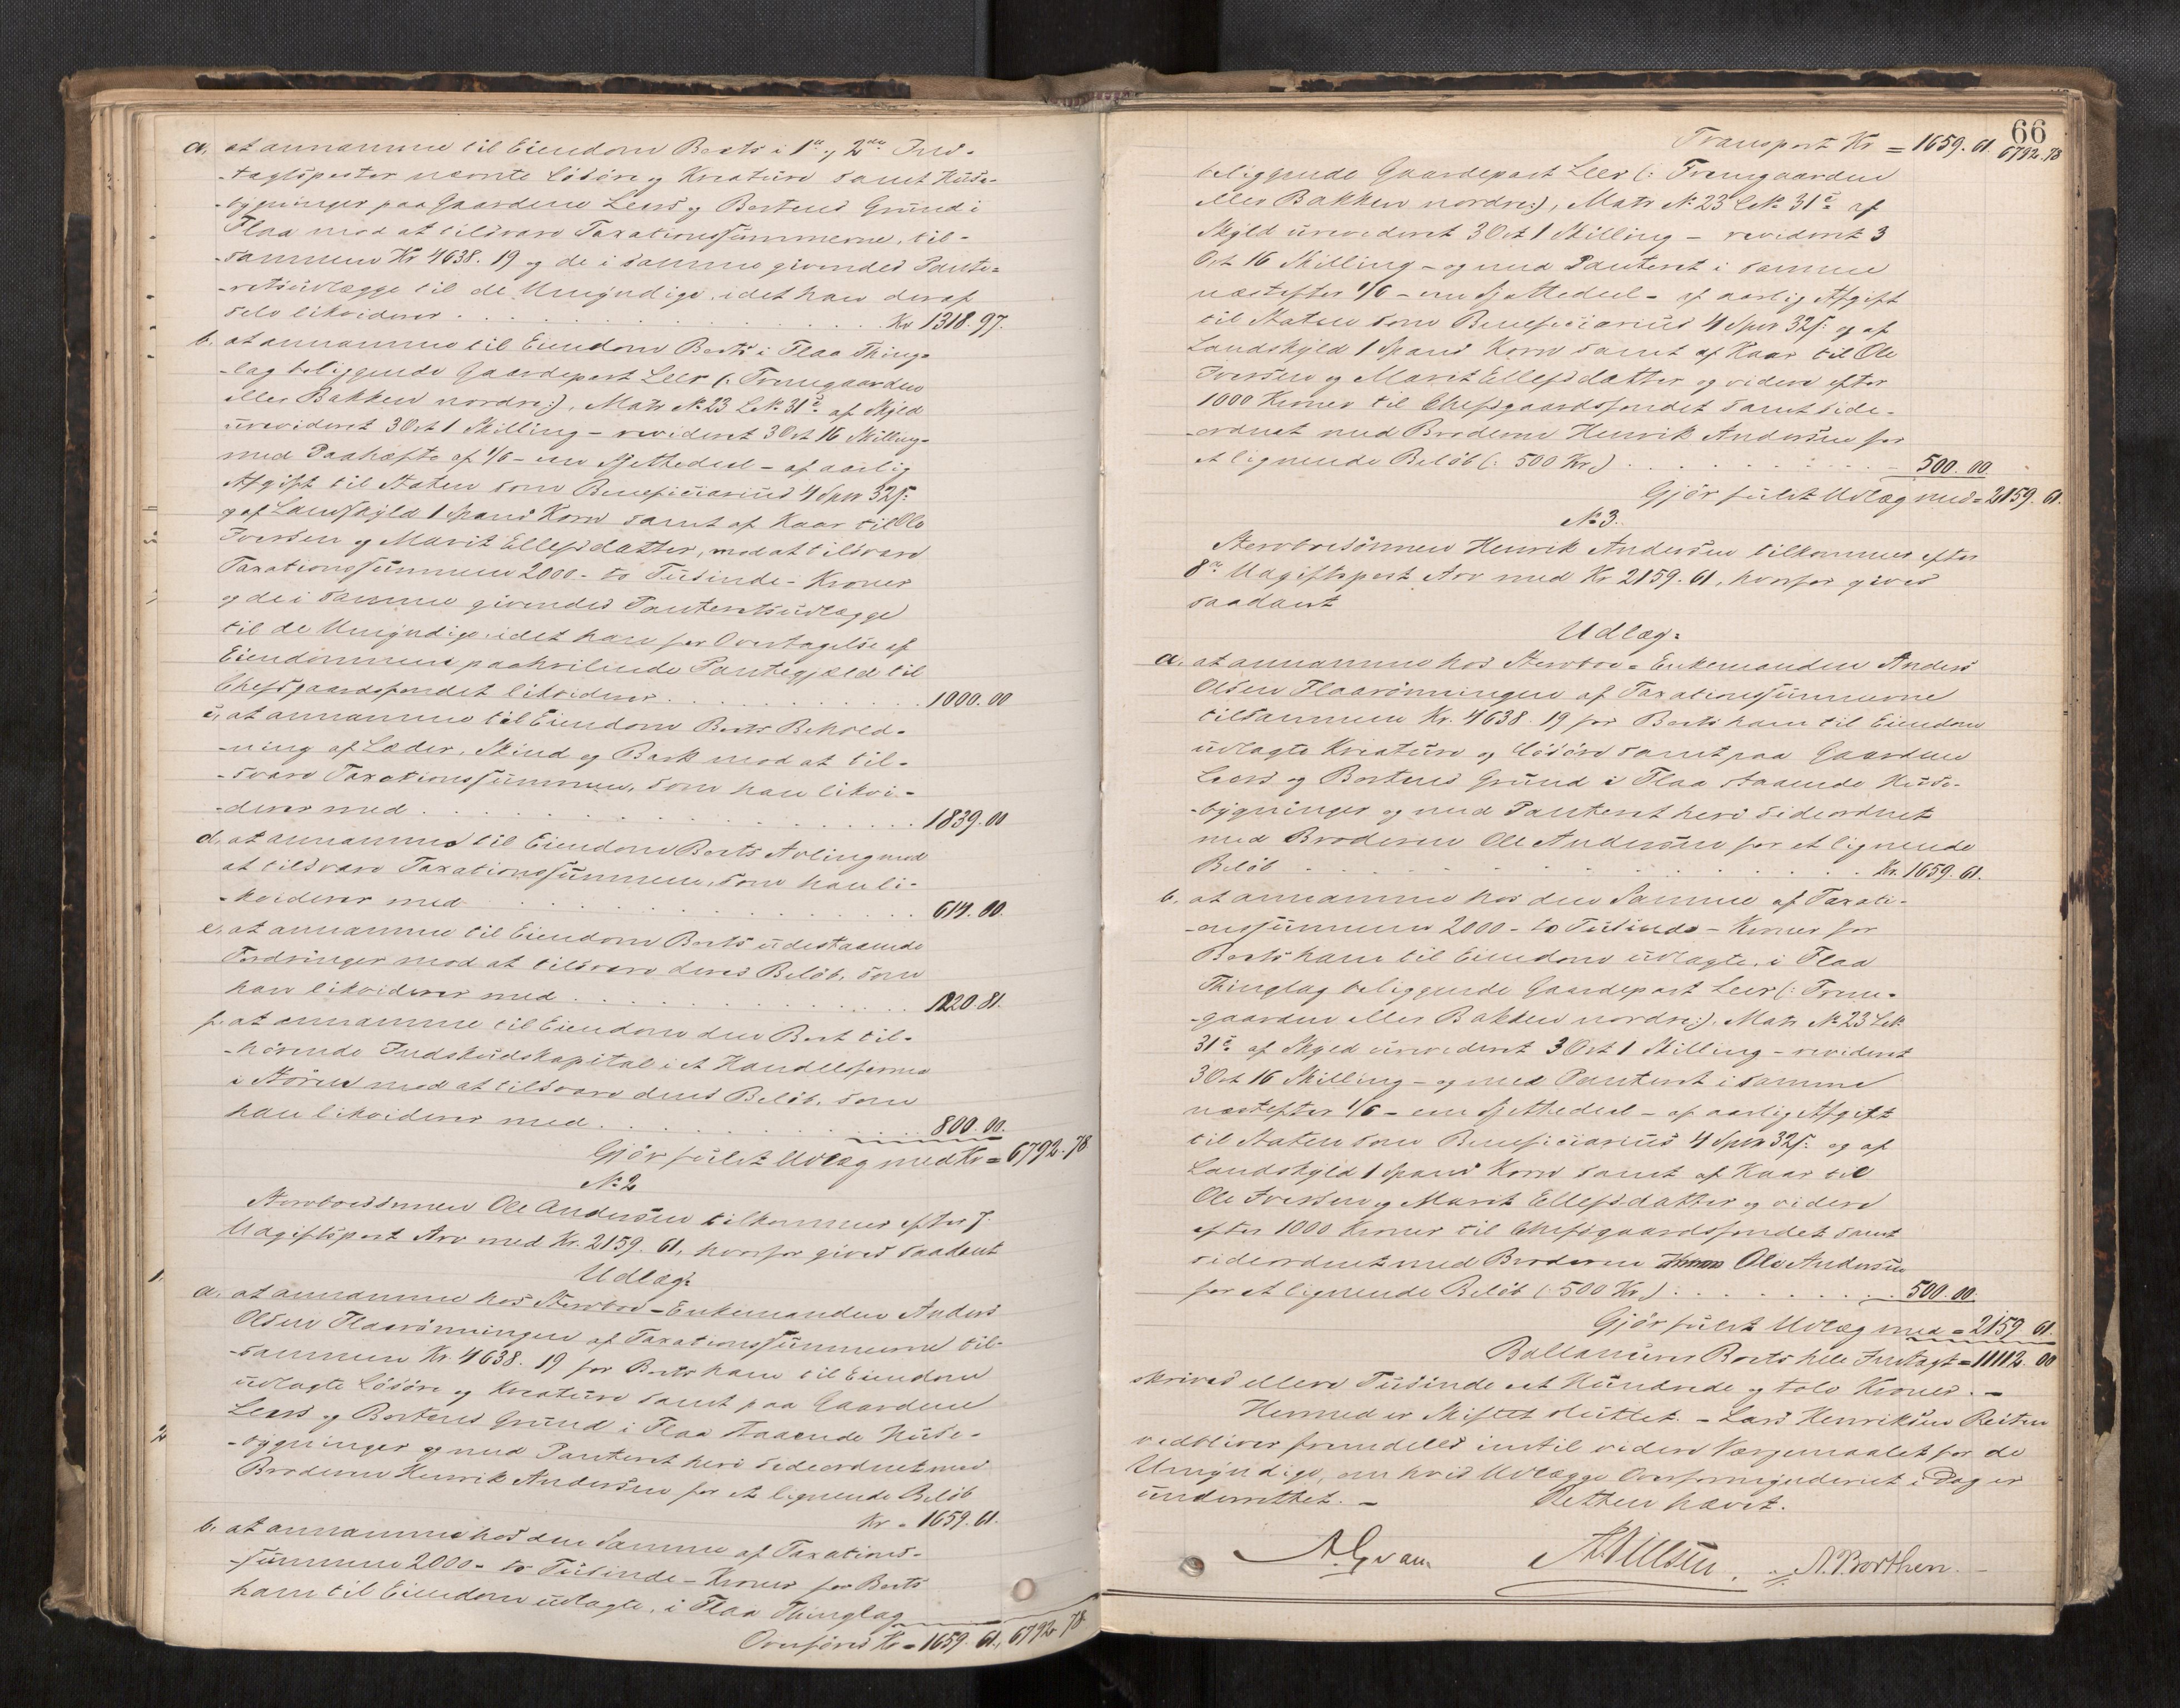 a, at annamme til Eiendom Boets i 1ste og 2den Ind-
-tægtsposter nævnte Løsøre og Kreature samt Huse-
-bygninger paa Gaardene Leers og Bortens Grund i
Flaa mod at tilsvare Taxationssummerne, til-
-sammen Kr 4638. 19 og de i samme givendes Pante-
-retsudlægge til de Umyndige, idet han deraf
selv likviderer . . . Kr 1318. 97.
b. at annamme til Eiendom Boets i Flaa Thing-
-lag beliggende Gaardepart Leer (: Fremgaarden
eller Bakken nordre:), Matr No 23 LNo 31c af Skyld
urevideret 3 Ort 1 Skilling – revideret 3 Ort 16 Skilling-
med Paahæfte af 1/6 – en Sjettedeel – af aarlig
Afgift til Staten som Beneficiarius 4 Spdr 32ß.
og af Landskyld 1 Spand Korn samt af Kaar til Ole
Iversen og Marit Ellefsdatter, mod at tilsvare
Taxationssummen 2000 – to Tusinde – Kroner
og de i samme givendes Panteretsudlægge
til de Umyndige, idet han for Overtagelse af
Eiendommen paahvilende Pantegjæld til
Chefsgaardsfondet likviderer . . . 1000. 00
c, at annamme til Eiendom Boets Behold-
-ning af Læder, Skind og Bark mod at til-
-svare Taxationssummen, som han likvi-
-derer med . . . 1839. 00
d, at annamme til Eiendom Boets Avling mod
at tilsvare Taxationssummen, som han li-
-kviderer med . . . 614. 00.
e, at annamme til Eiendom Boets udestaaende
Fordringer mod at tilsvare deres Beløb, som
han likviderer med . . . 1220. 81.
f. at annamme til Eiendom den Boet til-
-hørende Indskudskapital i et Handelsfirma
i Støren mod at tilsvare dens Beløb, som
han likviderer med . . . 800. 00.
Gjør fuldt Udlæg med Kr = 6792. 78
No 2
Stervboesønnen Ole Andersen tilkommer efter 7.
Udgiftspost Arv med Kr. 2159. 61, hvorfor gives saadant
Udlæg:
1.
a. at annamme hos Stervbo-Enkemanden Anders
Olsen Flaarønningen af Taxationssummerne til-
-sammen Kr. 4638. 19 for Boets ham til Eiendom
udlagte Løsøre og Kreature samt paa Gaardene
Leers og Bortens Grund i Flaa staaende Huse-
2
-bygninger og med Panteret heri sideordnet med
Broderen Henrik Andersen for et lignende Beløb
Kr = 1659. 61.
b. at annamme hos den Samme af Taxations-
-summen 2000 – to Tusinde – Kroner for Boets
ham til Eiendom udlagte, i Flaa Thinglag
Overføres Kr = 1659. 61. 6792. 78
66
Transport Kr = 1659. 61. 6792. 78
beliggende Gaardepart Leer (: Fremgaarden
eller Bakken nordre:), Matr No 23 LNo 31c af
Skyld urevideret 3 Ort 1 Skilling – revideret 3
Ort 16 Skilling – og med Panteret i samme
næstefter 1/6 – en Sjettedeel – af aarlig Afgift
til Staten som Beneficiarius 4 Spdr 32ß. og af
Landskyld 1 Spand Korn samt af Kaar til Ole
Iversen og Marit Ellefsdatter og videre efter
1000 Kroner til Chefsgaardsfondet samt side-
-ordnet med Broderen Henrik Andersen for
et lignende Beløb (: 500 Kr:) . . . 500. 00.
Gjør fuldt Udlæg med = 2159. 61.
No 3.
Stervboesønnen Henrik Andersen tilkommer efter
8de Udgiftspost Arv med Kr 2159. 61, hvorfor gives
saadant
Udlæg:
a. at annamme hos Stervbo-Enkemanden Anders
Olsen Flaarønningen af Taxationssummerne
tilsammen Kr. 4638. 19 for Boets ham til Eiendom
udlagte Kreature og Løsøre samt paa Gaardene
Leers og Bortens Grund i Flaa staaende Huse-
-bygninger og med Panteret heri sideordnet
med Broderen Ole Andersen for et lignende
Beløb . . . Kr. 1659. 61.
b. at annamme hos den Samme af Taxati-
-onssummen 2000 – to Tusinde – Kroner for
Boets ham til Eiendom udlagte, i Flaa
Thinglag beliggende Gaardepart Leer (: Frem-
-gaarden eller Bakken nordre:), Matr No 23 LNo
31c af Skyld urevideret 3 Ort 1 Skilling – revideret
3 Ort 16 Skilling – og med Panteret i samme
næstefter 1/6 – en Sjettedeel – af aarlig Afgift
til Staten som Beneficiarius 4 Spdr 32ß. og af
Landskyld 1 Spand Korn samt af Kaar til
Ole Iversen og Marit Ellefsdatter og videre
efter 1000 Kroner til Chefsgaardsfondet samt
sideordnet med Broderen Ole Andersen
for et lignende Beløb (: 500 Kr:) . . . 500. 00.
Gjør fuldt Udlæg med = 2159. 61.
Ballancerer Boets hele Indtægt = 11112. 00
skrives elleve Tusinde eet Hundrede og tolv Kroner. –
Hermed er Skiftet sluttet. – Lars Henriksen Reiten
vedbliver fremdeles indtil videre Værgemaalet for de
Umyndige, om hvis Udlægge Overformynderiet i Dag er
underrettet. – Retten hævet.
A. Qvam A. Nilsen. A. Borthen.